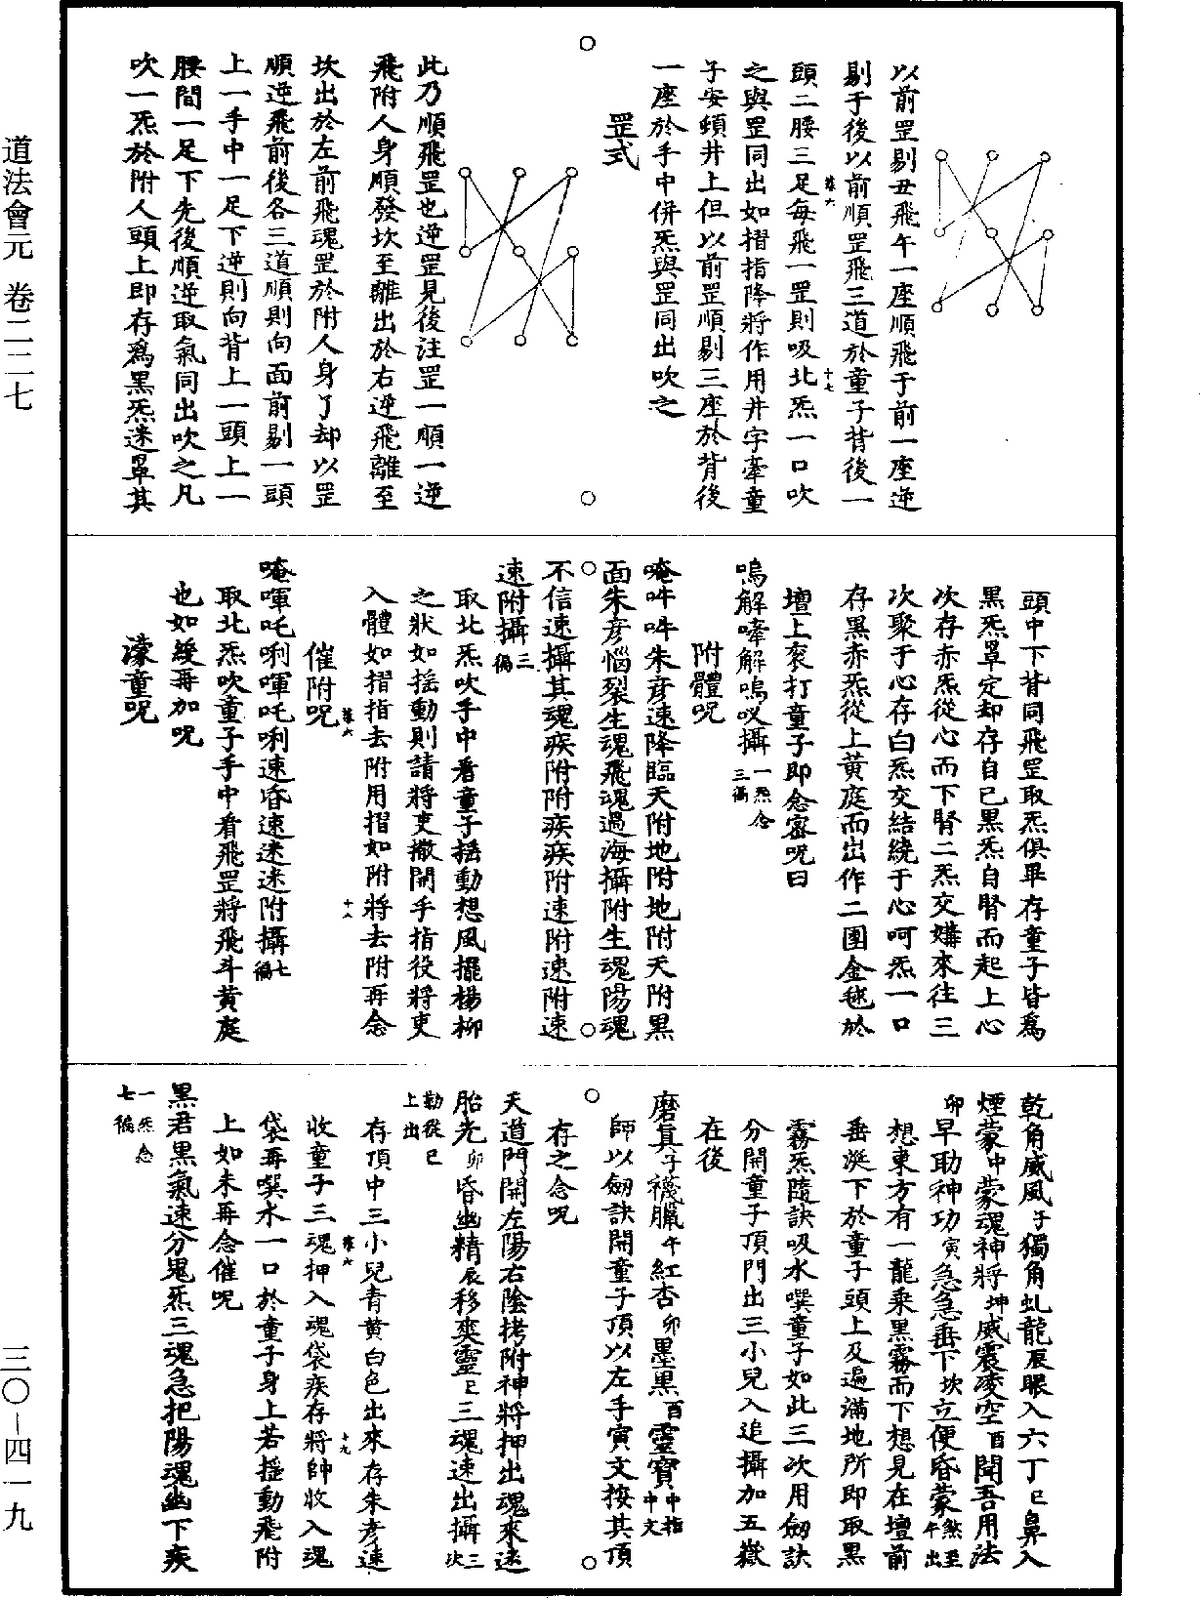 道法會元 卷二二七
三〇－四一九
以前罡剔丑飛午一座順飛于前一座逆
剔于後以前順罡飛三道於童子背後一
頭二腰三足每飛一罡則吸北炁一口吹
之與罡同出如摺指降將作用井字牽童
子安頓井上但以前罡順剔三座於背後
一座於手中併炁與罡同出吹之
罡式
此乃順飛罡也逆罡見後注罡一順一逆
飛附人身順發坎至離出於右逆飛離至
坎出於左前飛魂罡於附人身了却以罡
順逆飛前後各三道順則向面前剔一頭
上一手中一足下逆則向背上一頭上一
腰間一足下先後順逆取氣同出吹之凡
吹一炁於附人頭上即存爲黑炁迷罩其
頭中下背同飛罡取炁俱畢存童子皆爲
黑炁罩定却存自己黑炁自腎而起上心
次存赤炁從心而下腎二炁交媾來往三
次聚于心存白炁交結繞于心呵炁一口
存黑赤炁從上黄庭而出作二團金毬於
壇上衮打童子即念密呪曰
嗚解嘷解嗚㕥攝一炁念三徧
附體呪
唵吽吽朱彦速降臨天附地附地附天附黑
面朱彦惱裂生魂飛魂過海攝附生魂陽魂
不信速攝其魂疾附附疾疾附速附速附速
速附攝三徧
取北炁吹手中看童子揺動想風擺楊柳
之狀如揺動則請將吏撒開手指役將吏
入體如摺指去附用摺如附將去附再念
催附呪
唵㖶吒唎㖶吒唎速昏速迷迷附攝七徧
取北炁吹童子手中看飛罡將飛斗黄庭
也如緩再加呪
濛童呪
乾角威風子獨角虬龍辰眼入六丁巳鼻入
煙蒙中蒙魂神將坤威震凌空酉聞吾用法
卯早助神功寅急急垂下坎立便昏蒙煞至午出
想東方有一龍乘黑霧而下想見在壇前
垂涎下於童子頭上及遍滿地所即取黑
霧炁隨訣吸水噀童子如此三次用劒訣
分開童子頂門出三小兒入追攝加五嶽
在後
磨真子襪臘午紅杏卯墨黑酉靈寶中指中文
師以劒訣開童子頂以左手寅文按其頂
存之念呪
天道門開左陽右陰拷附神將押出魂來迷
胎光卯昏幽精辰移爽靈巳三魂速出攝三次
勒從巳上出
存頂中三小兒青黄白色出來存朱彦速
收童子三魂押入魂袋疾存將帥收入魂
袋再噀水一口於童子身上若揺動飛附
上如未再念催呪
黑君黑氣速分鬼炁三魂急把陽魂幽下疾
一炁念七徧